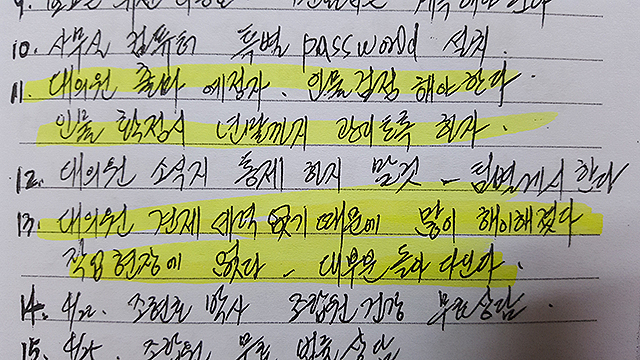 10. 사무실 컴퓨터 특별 password 설치.
11. 대의원 출마 예정자. 인물검정 해야한다
인물 확정시 년말까지 관리토록 하자.
12. 대의원 소식지 통제 하지 말것 - 팀별게시 한다
13. 대의원 견제 세력 없기 때문에 많이 해이해졌다
작업현장에 없다 - 대부분 돌아 다닌다.
14. 4/22. 조현호 박사 조합원 건강 무료상담.
15. 4/25. 조합원 무료 법률 상담